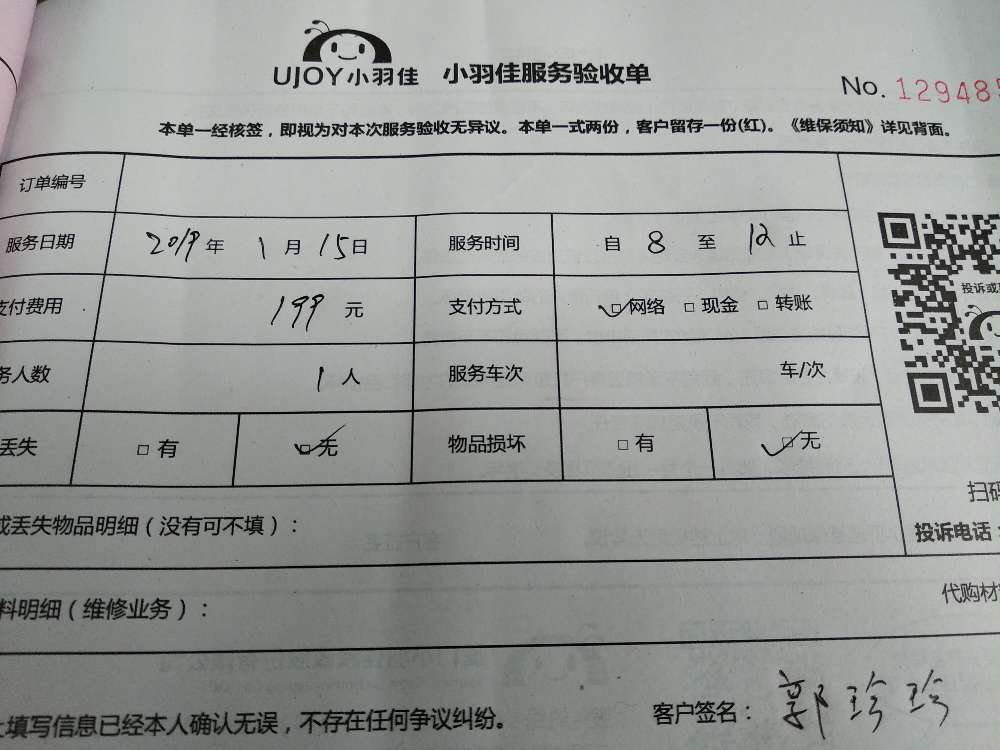 UJOY小羽佳 小羽佳服务验收单
No. 129485
本单一经核签，即视为对本次服务验收无异议。本单一式两份，客户留存一份(红)。《维保须知》详见背面。
订单编号
服务日期 2019年 1月 15日 服务时间 自 8 至 12 止
支付费用 199 元 支付方式 □网络 □现金 □转账
务人数 1人 服务车次 车/次
丢失 □有 □无 物品损坏 □有 □无
投诉或
扫码
或丢失物品明细（没有可不填）：
投诉电话：
料明细（维修业务）：
代购材
上填写信息已经本人确认无误，不存在任何争议纠纷。 客户签名：郭珍珍